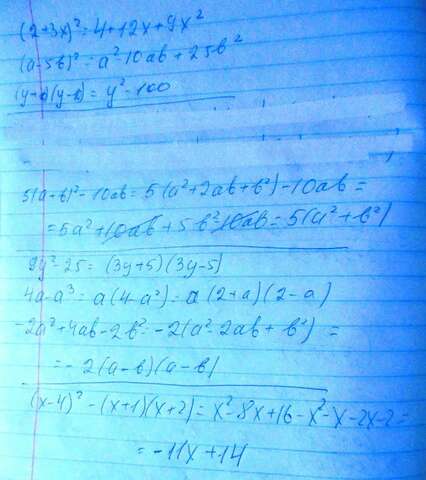 (2+3x)²=4+12x+9x²
(a-5b)²=a²-10ab+25b²
(y+10)(y-10)=y²-100
5(a-b)²-10ab=5(a²+2ab+b²)-10ab=
=5a²+10ab+5b²-10ab=5(a²+b²)
9y²-25=(3y+5)(3y-5)
4a-a³=a(4-a²)=a(2+a)(2-a)
-2a²+4ab-2b²=-2(a²-2ab+b²)=
=-2(a-b)(a-b)
(x-4)²-(x+1)(x+2)=x²-8x+16-x²-x-2x-2=
=-11x+14